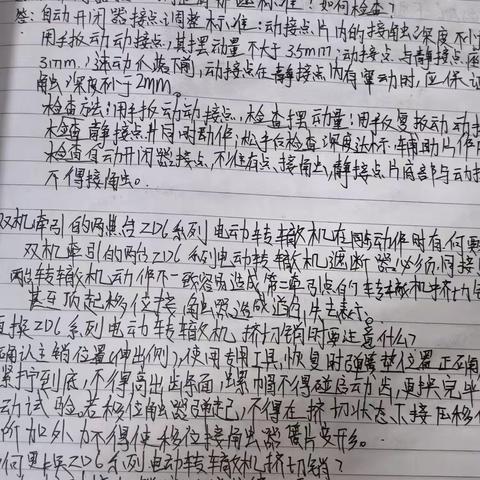 标准?如何检查?
答:自动开闭器接点调整标准:动接点片内的接触深度不小
用手扳动动接点,其摆动量不大于3.5mm;动接点与静接点座
3mm,速动爪落下前,动接点在静接点内有窜动时,应保证
触深度不小于2mm。
检查方法:用手扳动动接点,检查摆动量;用手反复扳动动接
检查静接点片同时动作;松手后检查深度达标,辅助片作用
检查自动开闭器接点,不能有点接触,静接点片底部与动接
不得接触。
双机牵引的两台ZD6系列电动转辙机在同步动作时有何要
双机牵引的两台ZD6系列电动转辙机遮断器必须同接
两转辙机动作不一致容易造成第二牵引点的转辙机挤切
甚至顶起移位接触器,造成道岔失去表示。
更换ZD6系列电动转辙机挤切销时要注意什么?
确认主销位置(伸出侧),使用专用工具,恢复时弹垫位置正确
紧拧到底,不得高出齿面,螺帽不得碰启动齿,更换完毕
动试验。若移位接触器弹起,不得在挤切状态下按压移位
所加外力不得使移位接触器簧片变形。
何更换ZD6系列电动转辙机挤切销?